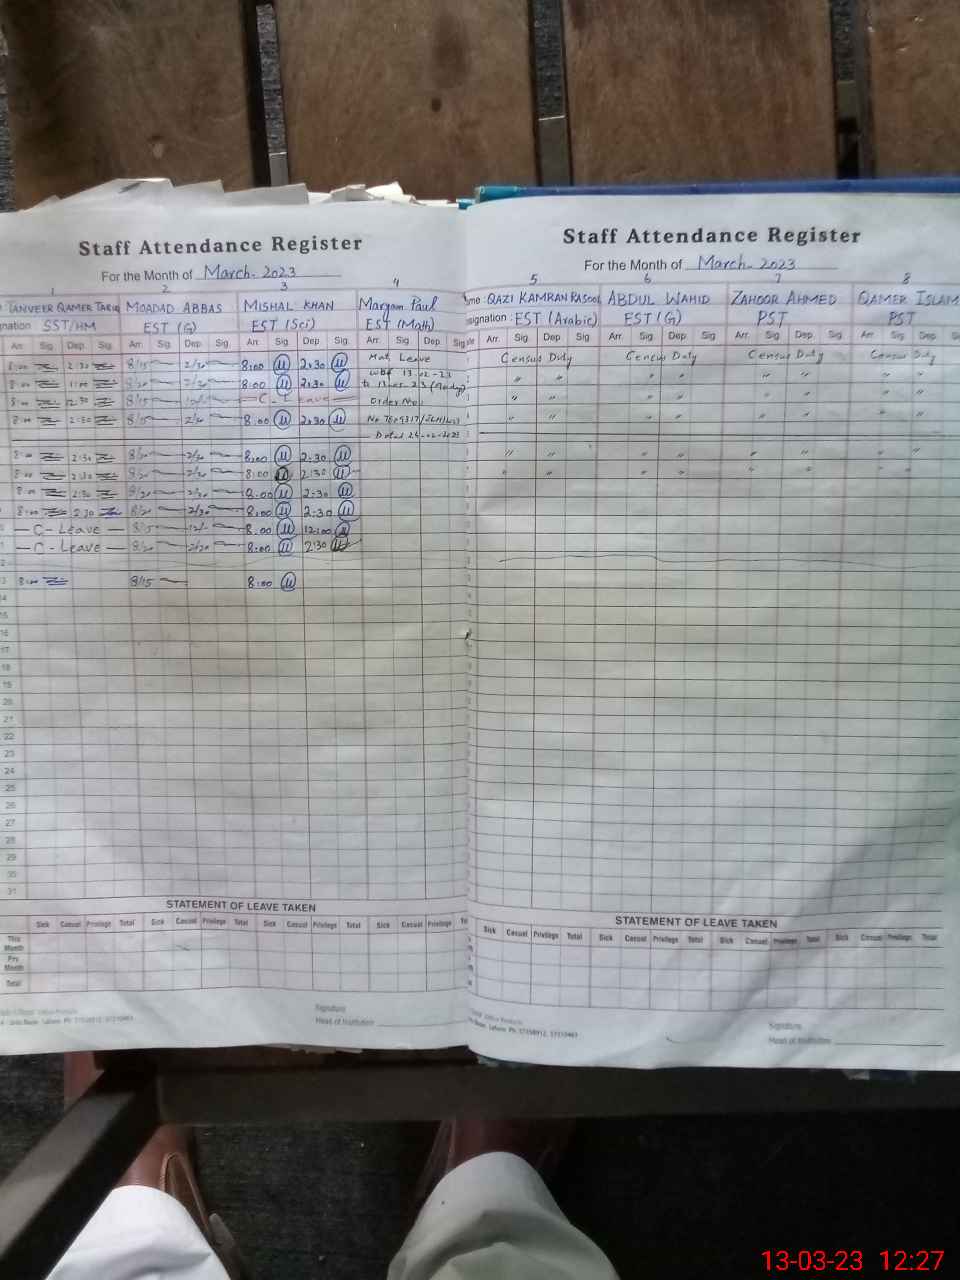 Staff Attendance Register
For the Month of March-2023
1 2 3 4
TANVEER QAMER TARIQ MOADAD ABBAS MISHAL KHAN Maryam Paul
nation SST/HM EST (G) EST (Sci) EST (Math)
Arr. Sig. Dep. Sig. Arr. Sig. Dep. Sig. Arr. Sig. Dep. Sig. Arr. Sig. Dep. Sig.
8:00 2:30 8/15 2/30 8:00 2:30 Mat. Leave
8:00 11:00 8/20 2/20 8:00 2:30 wef 13-02-23
8:00 12:30 8/15 C-Leave Order No:
8:00 2:30 8/15 2/20 8:00 2:30
Dated 24-02-2023
8:00 2:30 8/20 2/20 8:00 2:30
8:00 2:30 8/20 2/20 8:00 2:30
8:00 2:30 8/20 2/30 8:00 2:30
8:00 2:30 8/20 2/30 8:00 2:30
C-Leave 8/15 12/- 8:00 12:00
C-Leave 8/20 2/20 8:00 2:30
2
3 8:00 8/15 8:00
14
15
16
17
18
19
20
21
22
23
24
25
26
27
28
29
30
31
STATEMENT OF LEAVE TAKEN
Sick Casual Privilege Total Sick Casual Privilege Total Sick Casual Privilege Total Sick Casual Privilege
This Month
Prv Month
Total
Office Products
Urdu Bazar, Lahore. Ph: 37358912, 37310463
Signature
Head of Institution
Staff Attendance Register
For the Month of March-2023
5 6 7 8
me: QAZI KAMRAN RASOOL ABDUL WAHID ZAHOOR AHMED QAMER ISLAM
signation: EST (Arabic) EST (G) PST PST
Arr. Sig. Dep. Sig. Arr. Sig. Dep. Sig. Arr. Sig. Dep. Sig. Arr. Sig. Dep. Sig
Census Duty Census Duty Census Duty Census Duty
" " " " " " " "
" " " " " " " "
" " " " " " " "
" " " " " " " "
" " " " " " " "
STATEMENT OF LEAVE TAKEN
Sick Casual Privilege Total Sick Casual Privilege Total Sick Casual Privilege Total Sick Casual Privilege Total
Office Products
Bazar, Lahore. Ph: 37358912, 37310463
Signature
Head of Institution
13-03-23 12:27